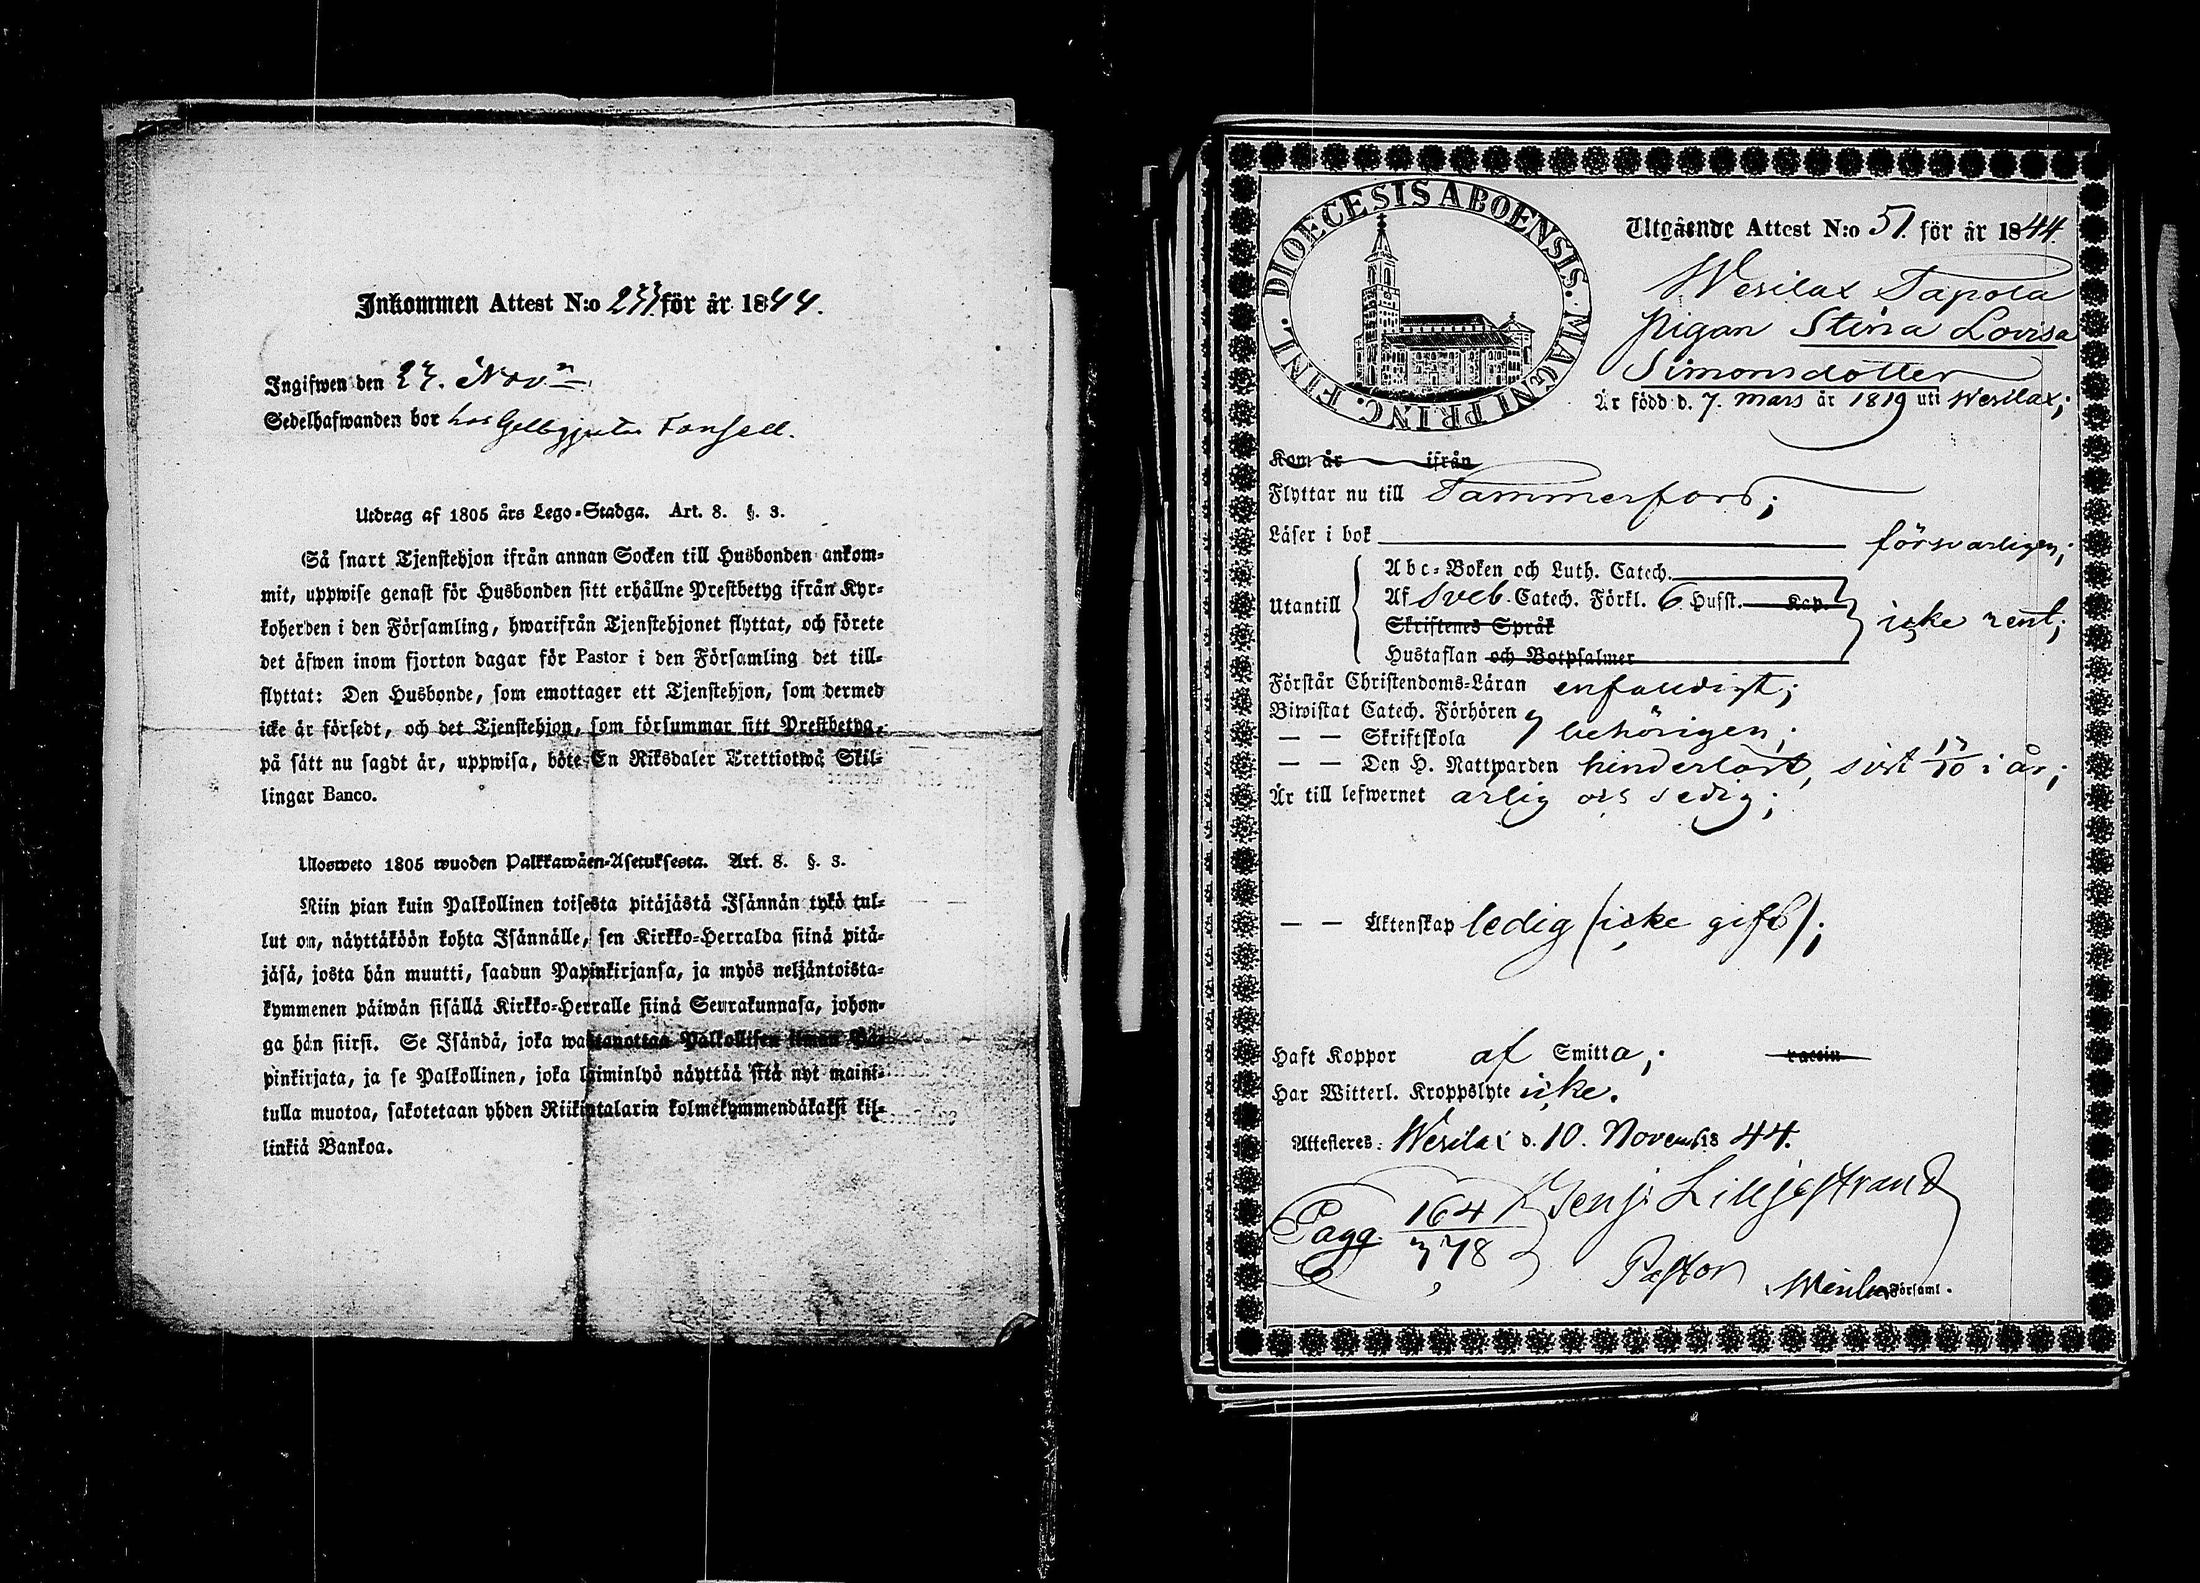 Inkommen Attest N:o 233 för år 1844.
Ingifwen den 27. Nov.
Sedelhafwanden bor hos Gelbgjutar
Utdrag af 1805 års Lego-Stadga. Art. 8. §. 3.
Så snart Tjenstehjon ifrån annan Socken till Husbonden ankom-
mit, uppwise genast för Husbonden sitt erhållne Prestbetyg ifrån Kyr-
koherden i den Församling, hwarifrån Tjenstehjonet flyttat, och förete
det äfwen inom fjorton dagar för Pastor i den Församling det till-
flyttat: Den Husbonde, som emottager ett Tjenstehjon, som dermed
icke är försedt, och det Tjenstehjon, som försummar sitt Prestbetyg,
på sätt nu sagdt är, uppwisa, böte En Riksdaler Trettiotwå Skil-
lingar Banco.
Ulosweto 1805 wuoden Palkkawäen-Asetuksesta. Art. 8. §. 3.
Niin pian kuin Palkollinen toisesta pitäjästä Isännän tykö tul-
lut on, näyttäköön kohta Isännälle, sen Kirkko-Herralda siinä pitä-
jäsä, josta hän muutti, saadun Papinkirjansa, ja myös neljäntoista-
kymmenen päiwän sisällä Kirkko-Herralle siinä Seurakunnasa, johon-
ga hän siirsi. Se Isändä, joka wastanottaa Palkollisen ilman Pa-
pinkirjata, ja se Palkollinen, joka laiminlyö näyttää sitä nyt maini-
tulla muotoa, sakotetaan yhden Riikintalarin kolmekymmendäkaksi kil-
linkiä Bankoa.
DIOECESIS ABOENSIS. MAGNI PRINC. FINL.
Utgående Attest N:o 51. för år 1844.
Wesilax Tapola
pigan Stina Lovisa
Simonsdotter
Är född d. 7. Mars år 1819 uti Wesilax;
Kom år ifrån
Flyttar nu till Tammerfors;
Läser i bok försvarligen;
Utantill
Abc-Boken och Luth. Catech.
Af Sveb. Catech. Förkl. 6 Hufst. Kap.
Skriftenes Språk
Hustaflan och Botpsalmer
icke rent;
Förstår Christendoms-Läran enfaldigt;
Biwistat Catech. Förhören
— — Skriftskola behörigen;
— — Den H. Nattwarden hinderlöst, sist 13/10 i år;
Är till lefwernet ärlig och sedig;
— — Äktenskap ledig (icke gift);
Haft Koppor af Smitta; vaccin
Har Witterl. Kroppslyte icke.
Attesteres: Wesilax d. 10. Novemb. 18 44.
Pagg. 164/378
Benj. Liljestrand
Pastor i Församl.